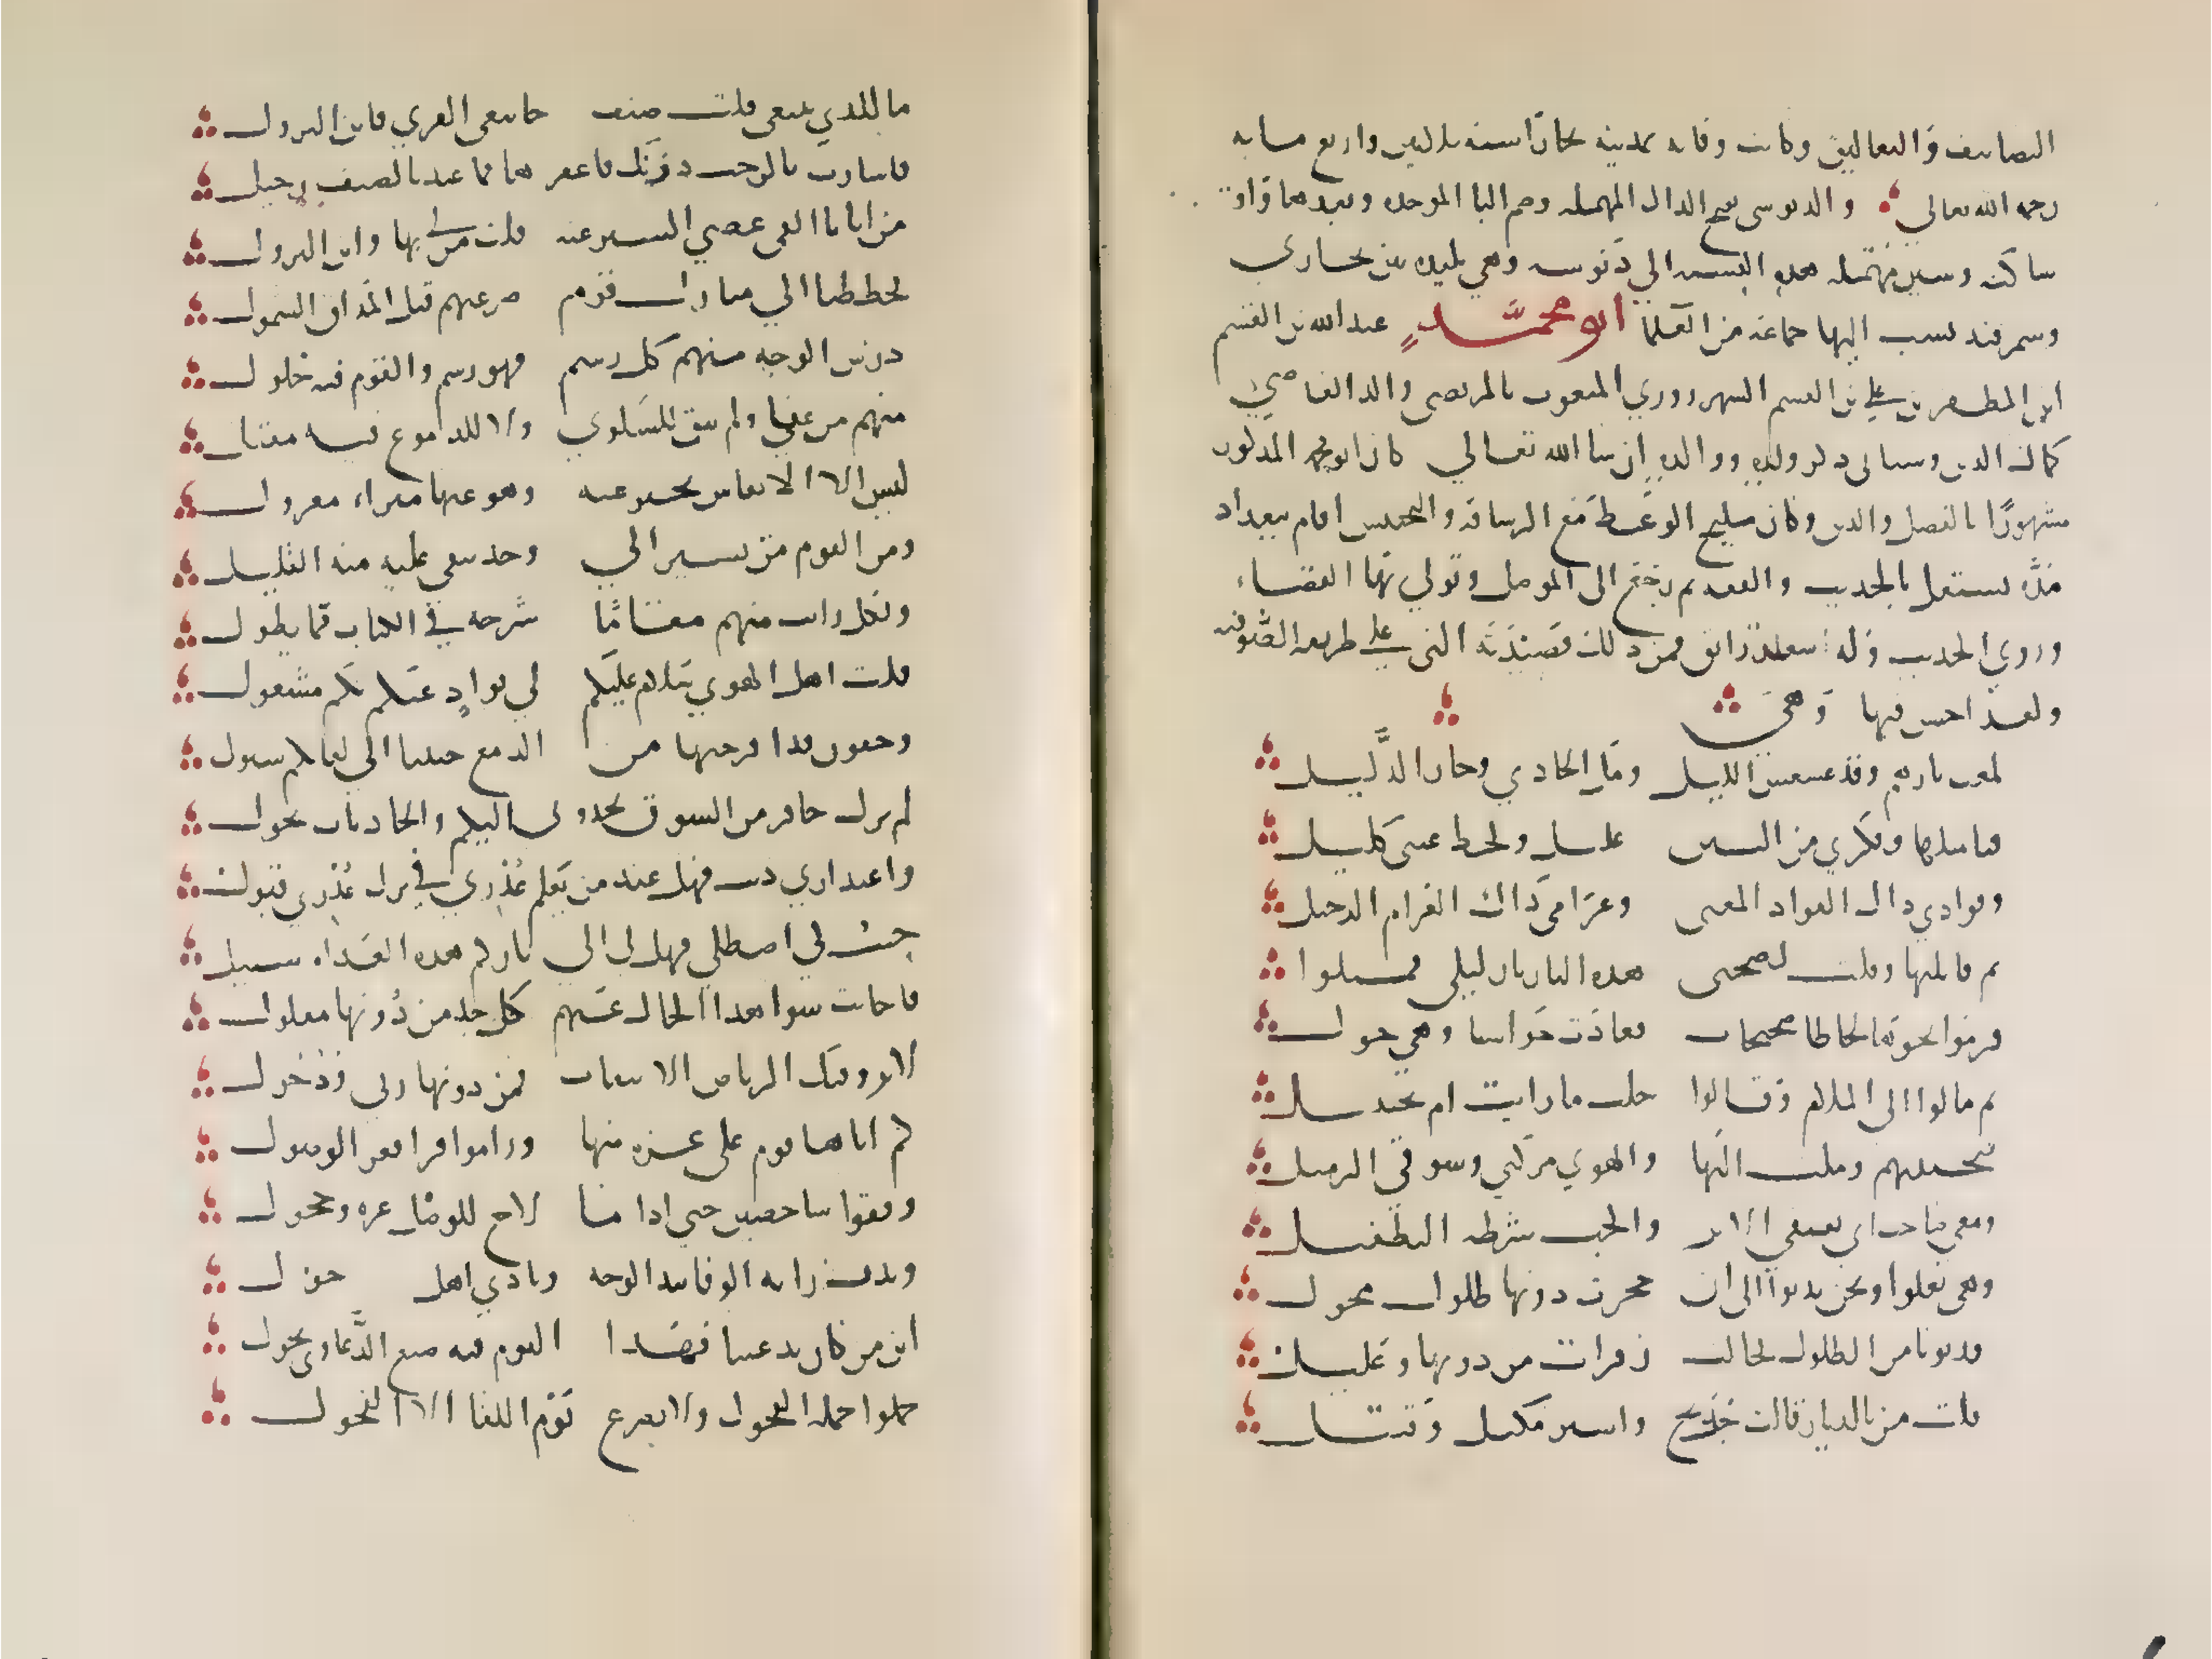 التصانيف والتعاليق وكانت وفاته بمدينة بخارا سنة ثلاثين واربع مايه
رحمه الله تعالى والدبوسي بفتح الدال المهمله وضم البا الموحده وبعدها واو
ساكنه وسين مهمله هذه النسبه الى دبوسه وهي بليده بين بخارى
وسمرقند نسب اليها جماعة من العلما ابو محمد عبد الله بن القسم
ابن المظفر بن علي بن القسم الشهرزوري المنعوت بالمرتضى والد القاضي
كمال الدين وسياتي ذكر ولده ووالده ان شا الله تعالى كان ابو محمد المذكور
مشهورًا بالفضل والدين وكان مليح الوعظ مع الرشاقه والتجنيس اقام ببغداد
مده يشتغل بالحديث والفقه ثم رجع الى الموصل وتولى بها القضاء
وروى الحديث وله شعر رائق فمن ذلك قصيدته التي على طريقه الصوفيه
ولقد احسن فيها وهي
لمعت نارهم وقد عسعس الليل ومل الحادي وحار الدليل
فتاملتها وفكري من البين عليل ولحظ عيني كليل
وفوادي ذاك الفواد المعنى وغرامي ذاك الغرام الدخيل
ثم قابلتها وقلت لصحبي هذه النار نار ليلى فميلوا
فرموا نحوها لحاظا صحيحات فعادت خواسا وهي حول
ثم مالوا الى الملام وقالوا خلب ما رايت ام تخييل
فتجنبتهم وملت اليها والهوى مركبي وشوقي الزميل
ومعي صاحب اتى يقتفي الاثر والحب شرطه التطفيل
وهي تعلوا ونحن ندنوا الى ان حجرت دونها طلول محول
فدنونا من الطلول فحالت زفرات من دونها وغليل
قلت من بالديار قالت جريح واسير مكبل وقتيل
ما الذي تبتغي قلت ضيف جا يبغي القرى فاين النزول
فاشارت بالرحب دونك فاعقرها فما عندنا لضيف رحيل
من اتانا القى عصى السير عنه قلت من لي بها واين النزول
فحططنا الى منازل قوم صرعتهم قبل المذاق الشمول
درس الوجد منهم كل رسم فهو رسم والقوم فيه حلول
منهم من عفى ولم يبق للشكوى ولا للدموع فيه مقيل
ليس الا الانفاس تخبر عنه وهو عنها مبراء معزول
ومن القوم من يشير الى وجد تبقى عليه منه القليل
ولكل رايت منهم مقامًا شرحه في الكتاب مما يطول
قلت اهل الهوى سلام عليكم لي فواد عنكم بكم مشغول
وجفون قد اقرحتها من الدمع حثيثا الى لقاكم سيول
لم يزل حافز من الشوق يحدوني اليكم والحادثات تحول
واعتذاري ذنب فهل عند من يعلم عذري في ترك عذري قبول
جئت كي اصطلي فهل لي الى ناركم هذه الغداه سبيل
فاجابت شواهد الحال عنهم كل حد من دونها مفلول
لا تروقنك الرياض الانيقات فمن دونها ربى ودخول
كم اتاها قوم على غره منها وراموا قرا فعز الوصول
وقفوا شاخصين حتى اذا ما لاح للوصل غره وحجول
وبدت رايه الوفا بيد الوجد ونادى اهل حول
اين من كان يدعينا فهذا اليوم فيه صبغ الدعاوى يحول
حملوا حمله الفحول ولا يصرع يوم اللقا الا الفحول